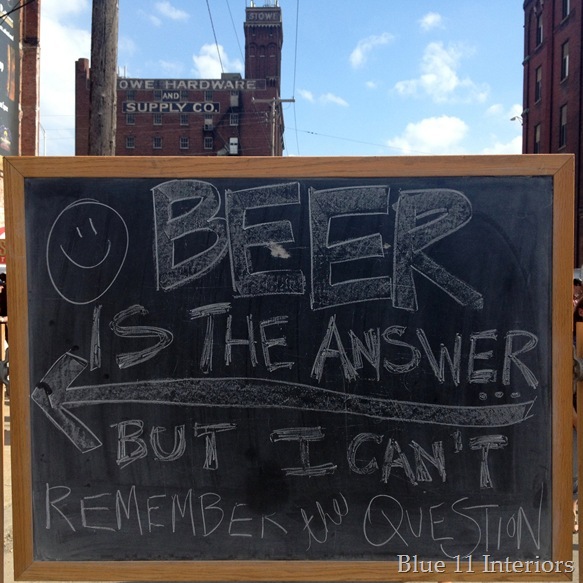 STOWE
OWE HARDWARE
AND
SUPPLY CO.
BEER
IS THE ANSWER
...
BUT I CAN'T
REMEMBER QUESTION
Blue 11 Interiors